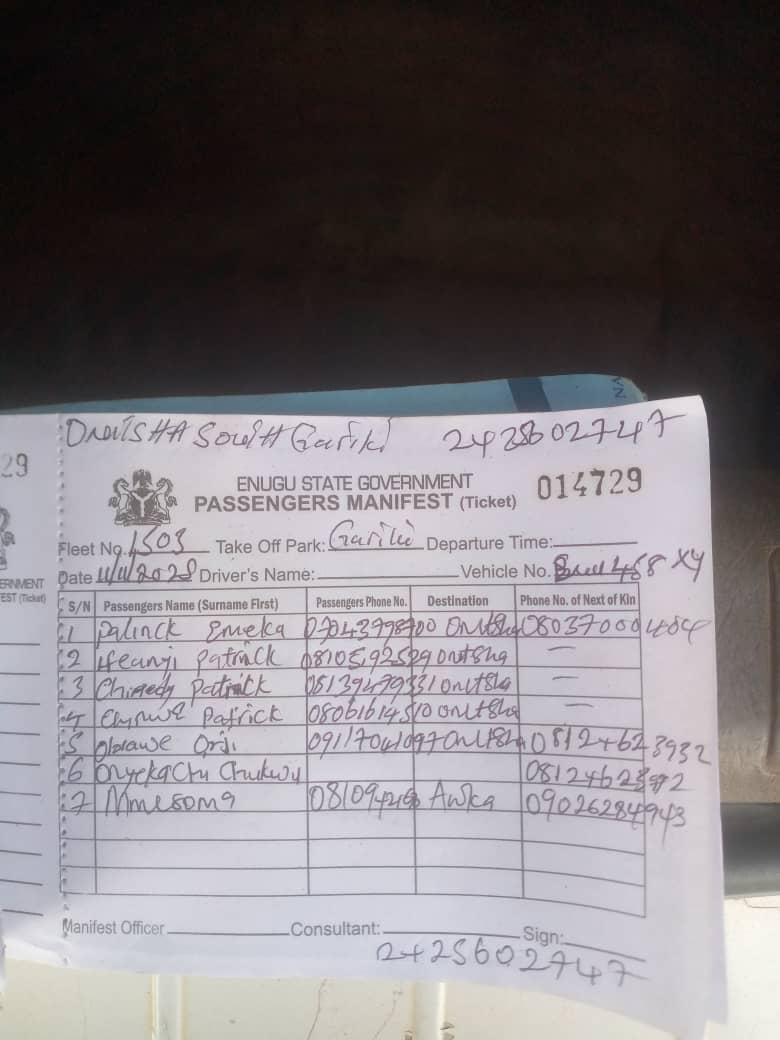 29
ONITSHA South Gariki 2425602747
ENUGU STATE GOVERNMENT
PASSENGERS MANIFEST (Ticket) 014729
Fleet No. 1503 Take Off Park: Gariki Departure Time:
Date 11/11/2025 Driver's Name: Vehicle No. 458 XY
ERNMENT
EST (Ticket)
S/N Passengers Name (Surname First) Passengers Phone No. Destination Phone No. of Next of Kin
1 Patrick Emeka 07043798700 Onitsha 08037000484
2 Ifeanyi Patrick 08105192529 onitsha —
3 Chinedu Patrick 08139479331 onitsha —
4 Patrick 08061614510 onitsha —
5 Orji 09117041097 Onitsha 08124623932
6 Onyekachi Chukwu
7 Mmesoma Awka 09026284943
Manifest Officer Consultant: Sign:
2425602747
NA